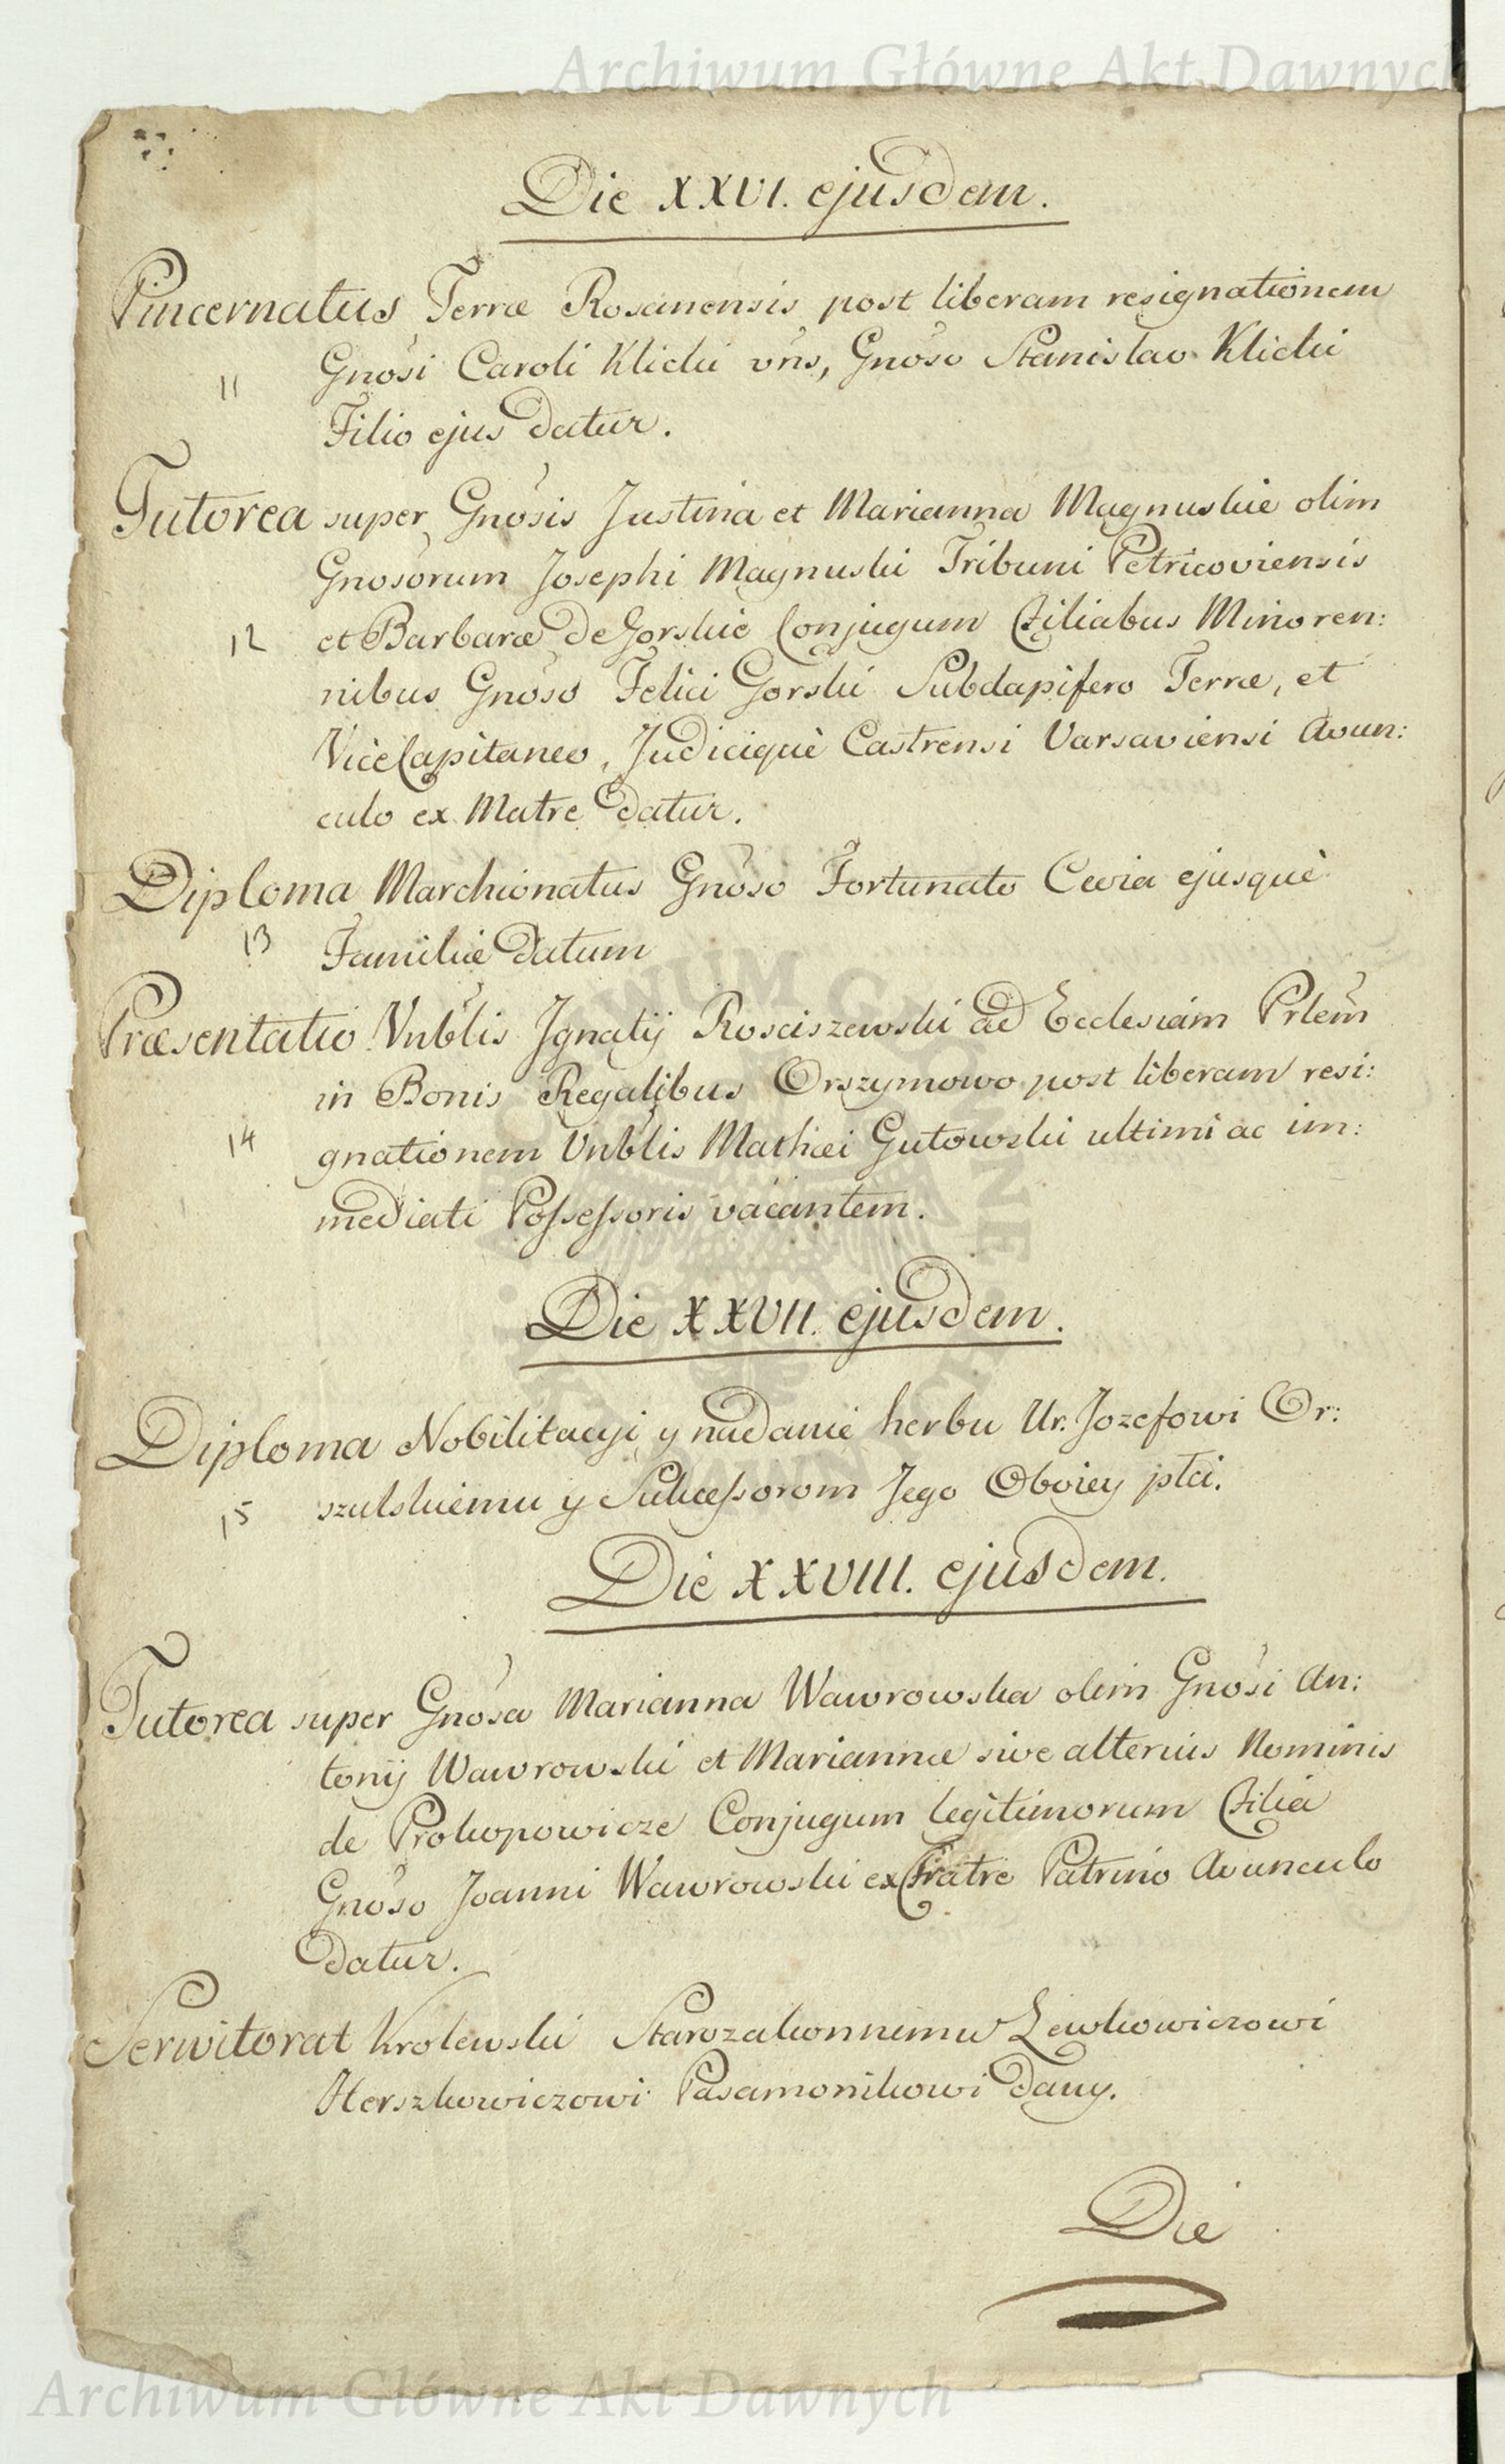 Archiwum Główne Akt Dawnych
Die XXVI. ejusdem.
Pincernatus Terræ Rosanensis post liberam resignationem
11
Gnosi Caroli Klicki vris, Gnoso Stanislao Klicki
Filio ejus datur.
Tutorea super Gnosis Justina et Marianna Magnuskie olim
Gnosorum Josephi Magnuski Tribuni Petricoviensis
12
et Barbaræ de Gorskie Conjugum Filiabus Minoren:
nibus Gnoso Felici Gorski Subdapifero Terræ, et
ViceCapitaneo, Judicique Castrensi Varsaviensi Avun:
culo ex Matre datur.
Diploma Marchionatus Gnoso Fortunato Cevia ejusque
13
Familiæ datum
Præsentatio Vnblis Jgnatij Rosciszewski ad Ecclesiam Prlem
in Bonis Regalibus Orszymowo post liberam resi:
14
gnationem Vnblis Mathæi Gutowski ultimi ac im:
mediati Possessoris vacantem.
Die XXVII. ejusdem.
Diploma Nobilitacyi y nadanie herbu Ur. Jozefowi Or:
15
szulskiemu y Sukcessorom Jego Oboiey płci.
Die XXVIII. ejusdem.
Tutorea super Gnosa Marianna Wawrowska olim Gnosi An:
tonij Wawrowski et Mariannæ sive alterius Nominis
de Prokopowicze Conjugum legitimorum Filia
Gnoso Joanni Wawrowski ex Fratre Patrino Avunculo
datur.
Serwitorat Krolewski Starozakonnemu Lewkowiczowi
Herszkowiczowi Pasamonikowi Dany.
Die
Archiwum Główne Akt Dawnych